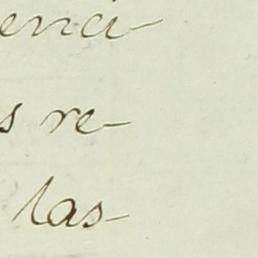 enci-
s re-
las-